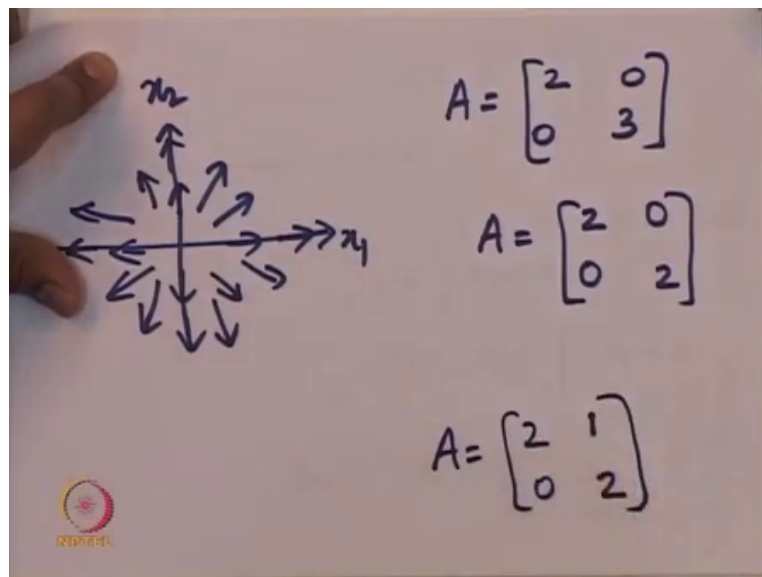 x₂
x₁
A = [2 0
0 3]
A = [2 0
0 2]
A = [2 1
0 2]
NPTEL